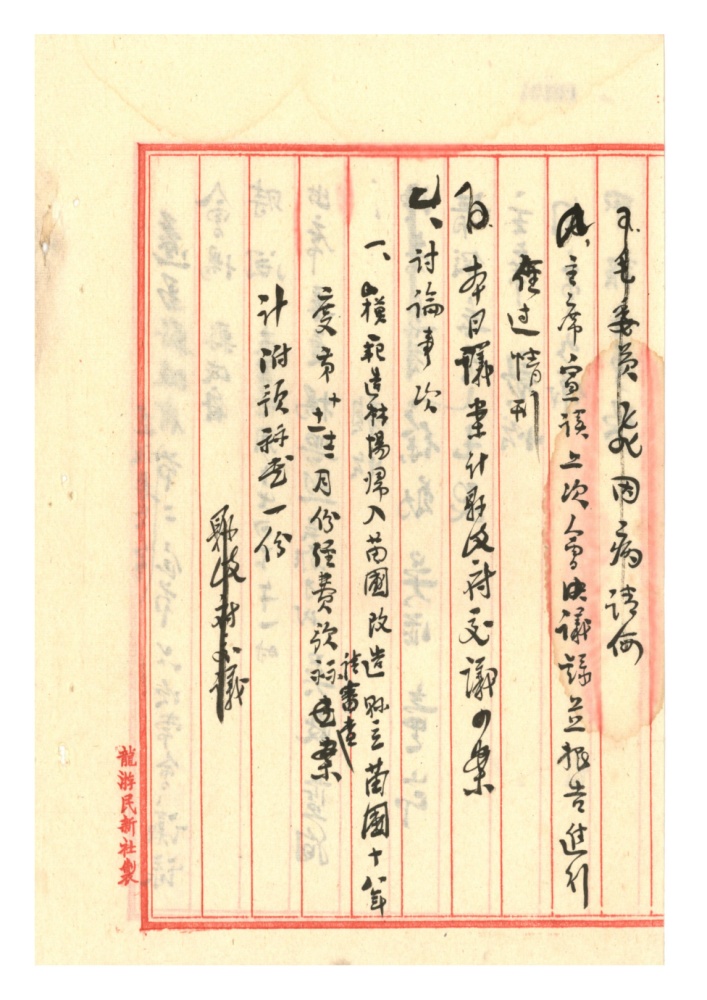 毛委員 因病請假
主席宣讀上次會決議錄並報告進行
經過情形
本日議案計縣政府交議 案
六、討論事次
一、模範造林場歸入苗圃改造縣立苗圃十八年
度第十十一十二月份經費預算書案
請審查
計附預算書一份
縣政府交議
龍游民新社製